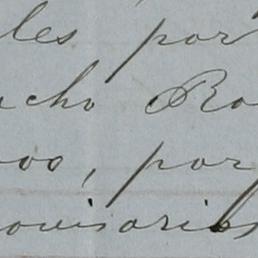 les por
acho Ro
os, por
ovisorios